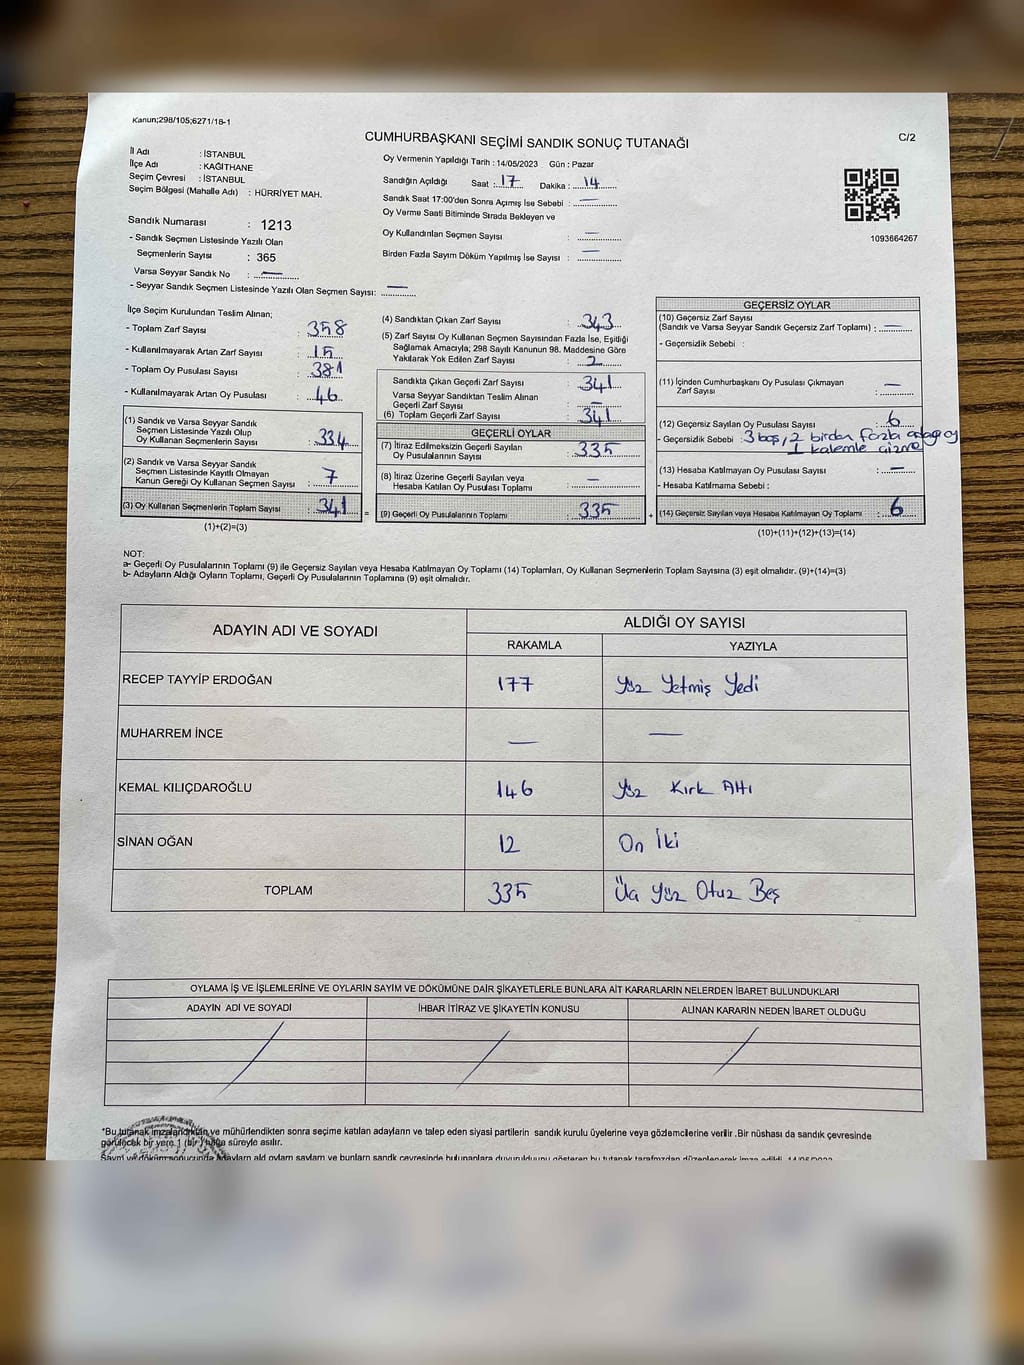 Kanun;298/105;6271/18-1
CUMHURBAŞKANI SEÇİMİ SANDIK SONUÇ TUTANAĞI
C/2
İl Adı : İSTANBUL
İlçe Adı : KAĞITHANE
Seçim Çevresi : İSTANBUL
Seçim Bölgesi (Mahalle Adı) : HÜRRİYET MAH.
Sandık Numarası : 1213
- Sandık Seçmen Listesinde Yazılı Olan
Seçmenlerin Sayısı : 365
Varsa Seyyar Sandık No : —
- Seyyar Sandık Seçmen Listesinde Yazılı Olan Seçmen Sayısı: —
Oy Vermenin Yapıldığı Tarih : 14/05/2023 Gün : Pazar
Sandığın Açıldığı Saat : 17 Dakika : 14
Sandık Saat 17:00'den Sonra Açımış İse Sebebi : —
Oy Verme Saati Bitiminde Sırada Bekleyen ve
Oy Kullandırılan Seçmen Sayısı : —
Birden Fazla Sayım Döküm Yapılmış İse Sayısı : —
1093664267
İlçe Seçim Kurulundan Teslim Alınan;
- Toplam Zarf Sayısı : 358
- Kullanılmayarak Artan Zarf Sayısı : 15
- Toplam Oy Pusulası Sayısı : 381
- Kullanılmayarak Artan Oy Pusulası : 46
(1) Sandık ve Varsa Seyyar Sandık
Seçmen Listesinde Yazılı Olup
Oy Kullanan Seçmenlerin Sayısı : 334
(2) Sandık ve Varsa Seyyar Sandık
Seçmen Listesinde Kayıtlı Olmayan
Kanun Gereği Oy Kullanan Seçmen Sayısı : 7
(3) Oy Kullanan Seçmenlerin Toplam Sayısı : 341 =
(1)+(2)=(3)
(4) Sandıktan Çıkan Zarf Sayısı : 343
(5) Zarf Sayısı Oy Kullanan Seçmen Sayısından Fazla İse, Eşitliği
Sağlamak Amacıyla; 298 Sayılı Kanunun 98. Maddesine Göre
Yakılarak Yok Edilen Zarf Sayısı : 2
Sandıkta Çıkan Geçerli Zarf Sayısı : 341
Varsa Seyyar Sandıktan Teslim Alınan
Geçerli Zarf Sayısı : —
(6) Toplam Geçerli Zarf Sayısı : 341
GEÇERLİ OYLAR
(7) İtiraz Edilmeksizin Geçerli Sayılan
Oy Pusulalarının Sayısı : 335
(8) İtiraz Üzerine Geçerli Sayılan veya
Hesaba Katılan Oy Pusulası Toplamı : —
(9) Geçerli Oy Pusulalarının Toplamı : 335 +
GEÇERSİZ OYLAR
(10) Geçersiz Zarf Sayısı
(Sandık ve Varsa Seyyar Sandık Geçersiz Zarf Toplamı) : —
- Geçersizlik Sebebi :
(11) İçinden Cumhurbaşkanı Oy Pusulası Çıkmayan
Zarf Sayısı : —
(12) Geçersiz Sayılan Oy Pusulası Sayısı : 6
- Geçersizlik Sebebi : 3 boş, 2 birden fazla
1 kalemle çizme
(13) Hesaba Katılmayan Oy Pusulası Sayısı : —
- Hesaba Katılmama Sebebi :
(14) Geçersiz Sayılan veya Hesaba Katılmayan Oy Toplamı : 6
(10)+(11)+(12)+(13)=(14)
NOT:
a- Geçerli Oy Pusulalarının Toplamı (9) ile Geçersiz Sayılan veya Hesaba Katılmayan Oy Toplamı (14) Toplamları, Oy Kullanan Seçmenlerin Toplam Sayısına (3) eşit olmalıdır. (9)+(14)=(3)
b- Adayların Aldığı Oyların Toplamı, Geçerli Oy Pusulalarının Toplamına (9) eşit olmalıdır.
ADAYIN ADI VE SOYADI
ALDIĞI OY SAYISI
RAKAMLA YAZIYLA
RECEP TAYYİP ERDOĞAN 177 Yüz Yetmiş Yedi
MUHARREM İNCE — —
KEMAL KILIÇDAROĞLU 146 Yüz Kırk Altı
SİNAN OĞAN 12 On İki
TOPLAM 335 Üç Yüz Otuz Beş
OYLAMA İŞ VE İŞLEMLERİNE VE OYLARIN SAYIM VE DÖKÜMÜNE DAİR ŞİKAYETLERLE BUNLARA AİT KARARLARIN NELERDEN İBARET BULUNDUKLARI
ADAYIN ADI VE SOYADI İHBAR İTİRAZ VE ŞİKAYETİN KONUSU ALINAN KARARIN NEDEN İBARET OLDUĞU
*Bu tutanak imzalandıktan ve mühürlendikten sonra seçime katılan adayların ve talep eden siyasi partilerin sandık kurulu üyelerine veya gözlemcilerine verilir .Bir nüshası da sandık çevresinde
görülecek bir yere 1 (bir) hafta süreyle asılır.